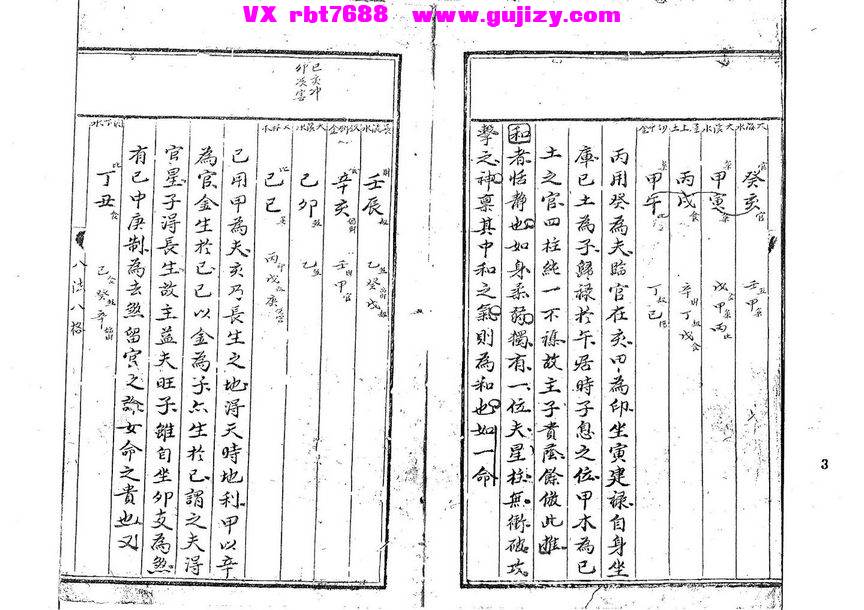 VX rbt7688 www.gujizy.com
3
大海水 大溪水 屋上土 砂中金
官 癸亥 官 壬 甲
甲寅 戊 甲 丙
丙戌 食 辛 丁 戊
甲午 丁 己
丙用癸為夫臨官在亥甲為印坐寅建祿自身坐
庫己土為子歸祿於午居時子息之位甲木為己
土之官四柱純一不雜故主子貴蔭餘倣此推
和者恬靜也如身柔弱獨有一位夫星柱無衝破攻
擊之神稟其中和之氣則為和也如一命
巳亥冲
卯辰害
長流水 釵釧金 大溪水
壬辰 乙 癸 戊
辛亥 壬 甲
己卯 乙
己巳 丙 戊 庚
己用甲為夫亥乃長生之地得天時地利甲以辛
為官金生於巳己以金為子亦生於巳謂之夫得
官星子得長生故主益夫旺子雖自坐卯支為煞
有巳中庚制為去煞留官之論女命之貴也又
丁丑 己 癸 辛
八法八格